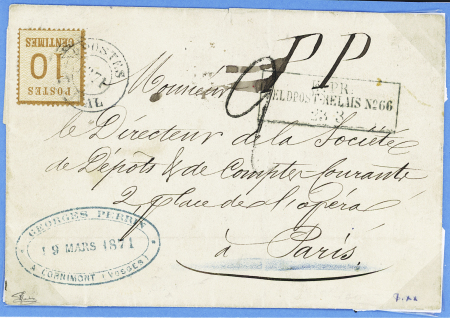 POSTES
10
CENTIMES
POSTES
PP
Monsieur
K. PR.
FELDPOST-RELAIS No 66
23 3
le Directeur de la Société
de Dépôts & de Comptes Courants
2 place de l'opéra
à Paris
GEORGES PERRIN
19 MARS 1871
A CORNIMONT (VOSGES)